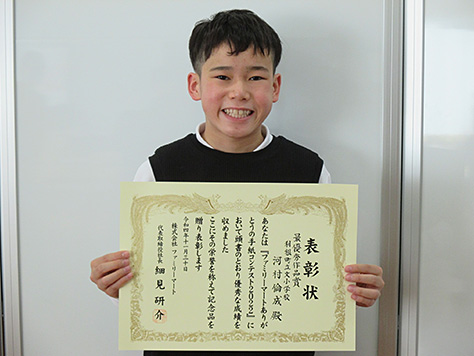 表彰状
最優秀作品賞
羽根町立文小学校
河付倫成殿
あなたは『ファミリーマートありが
とうの手紙コンテスト2022』に
おいて頭書のとおり優秀な成績を
収めました
ここにその栄誉を称えて記念品を
贈り表彰します
令和四年十一月二十日
株式会社ファミリーマート
代表取締役社長 細見研介